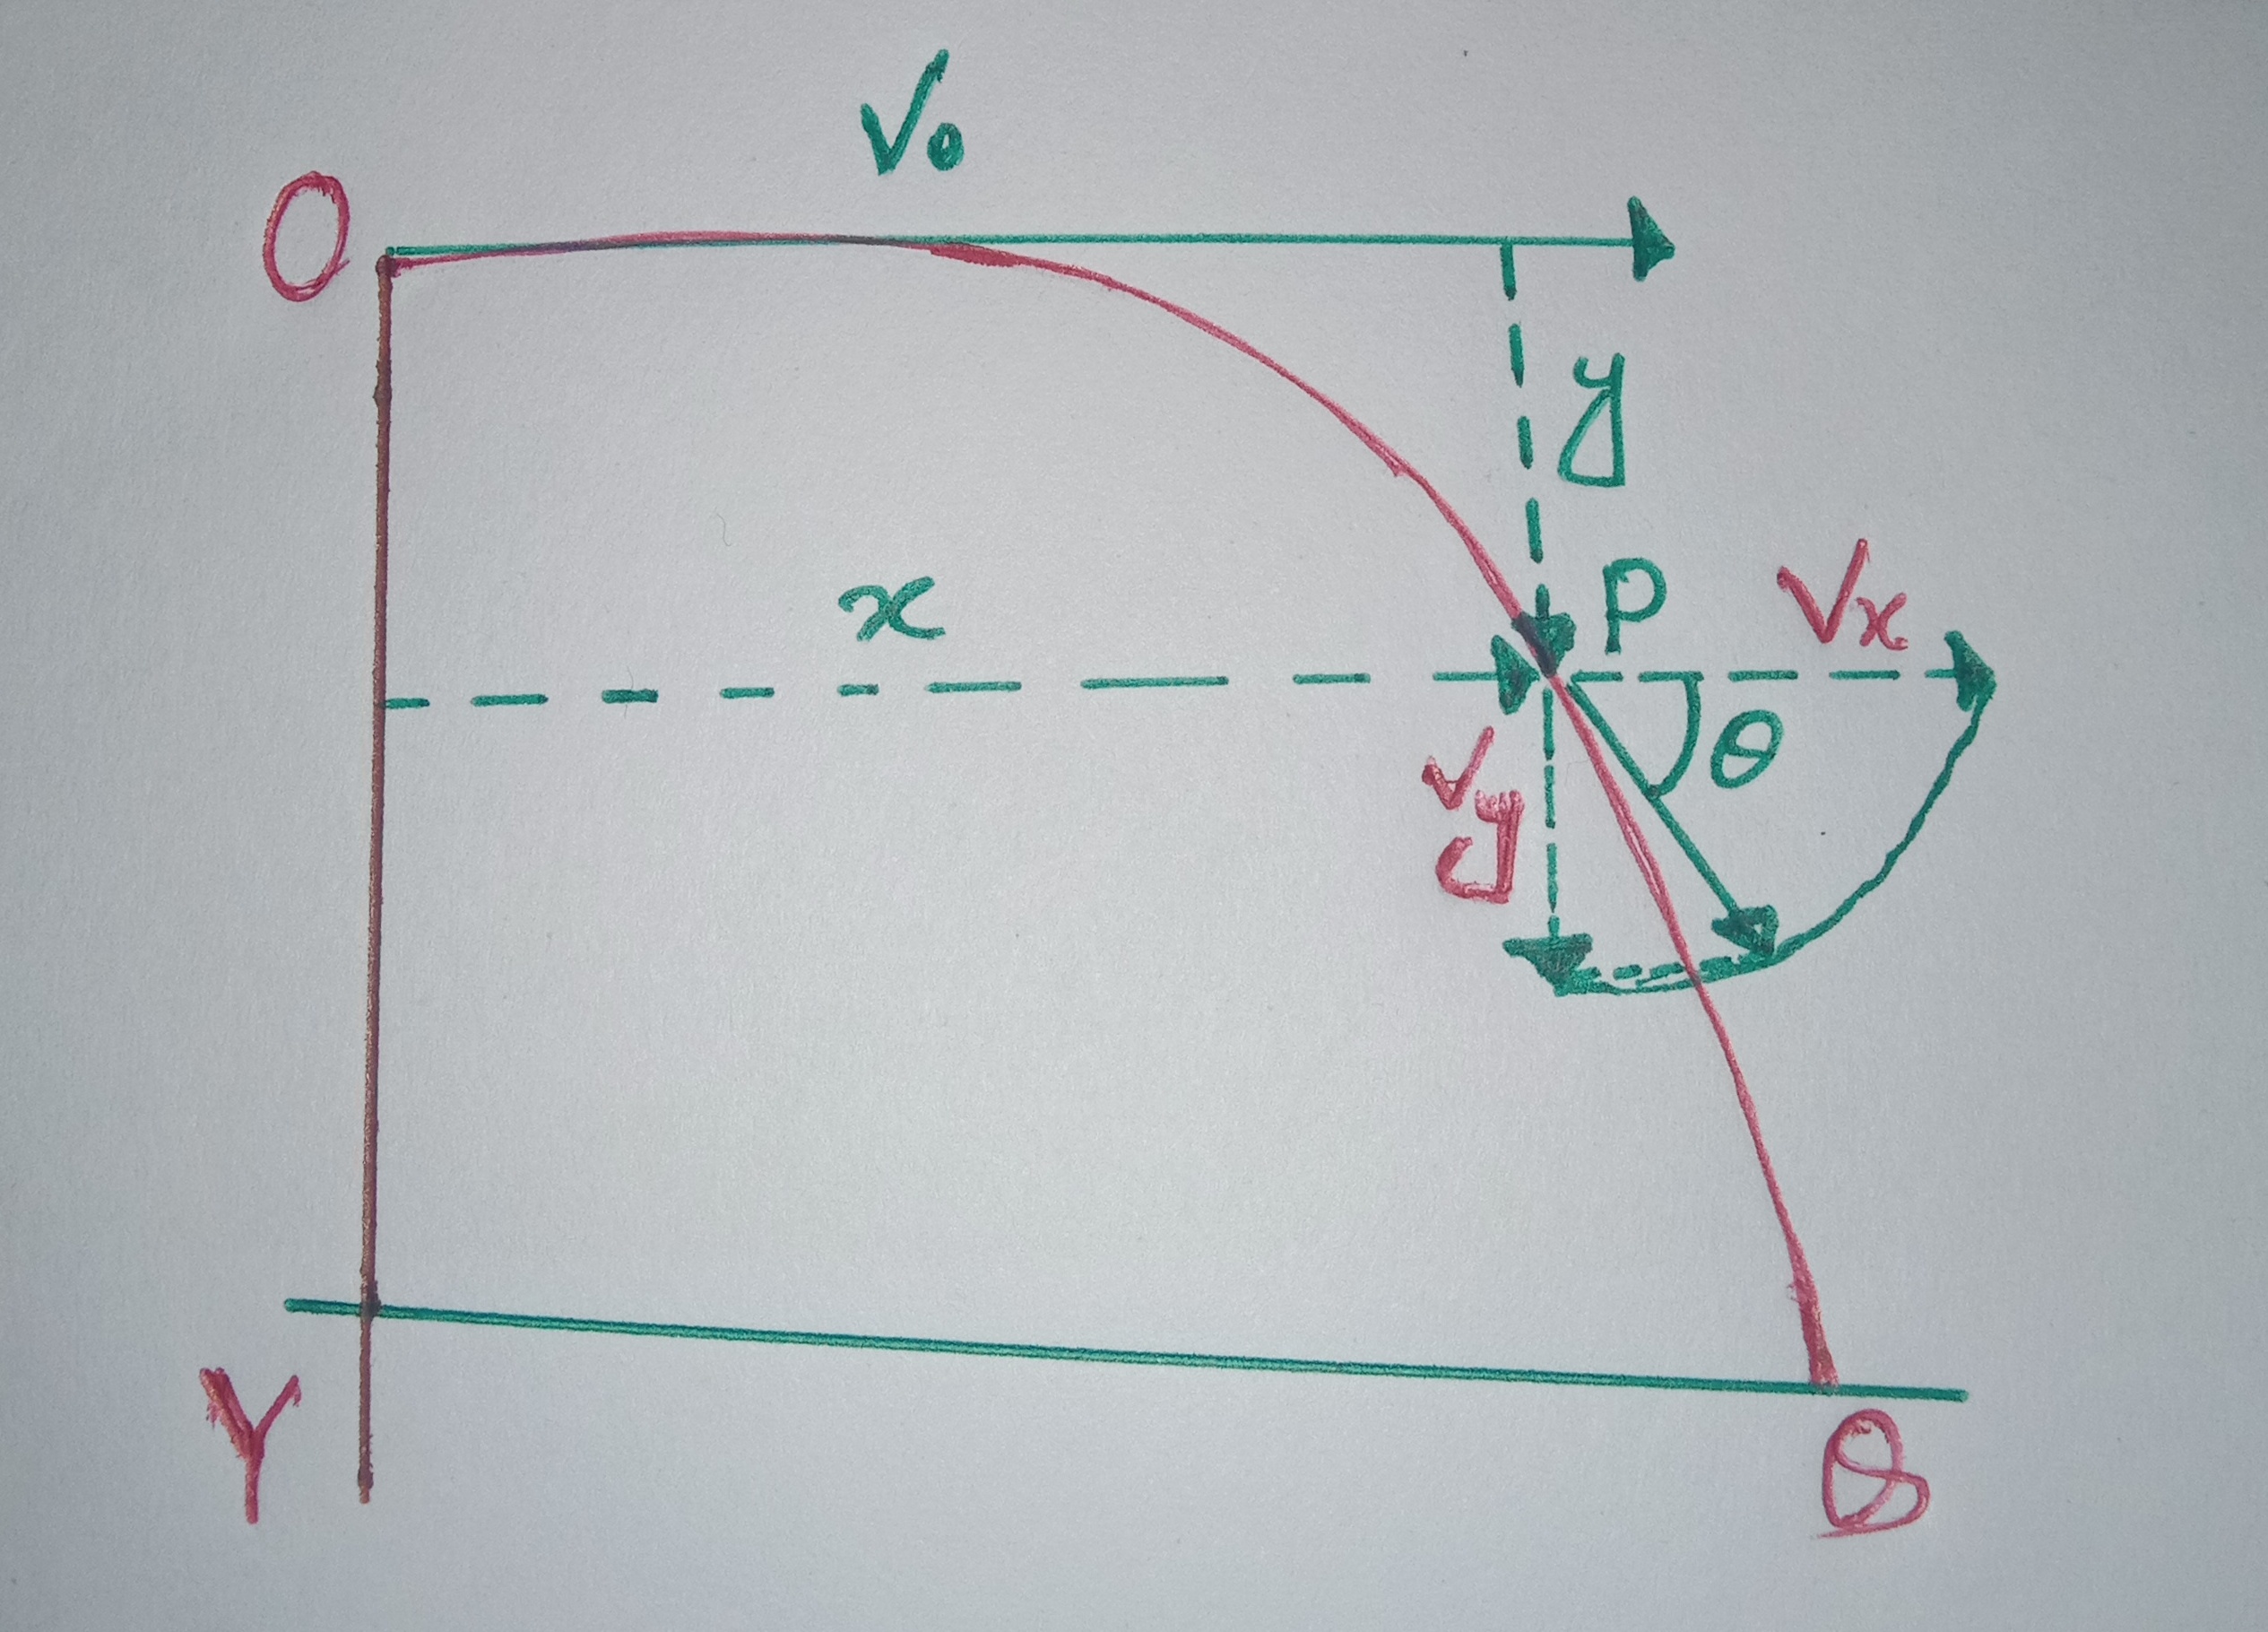 V₀
O
y
P
Vx
x
θ
Vy
Y
B